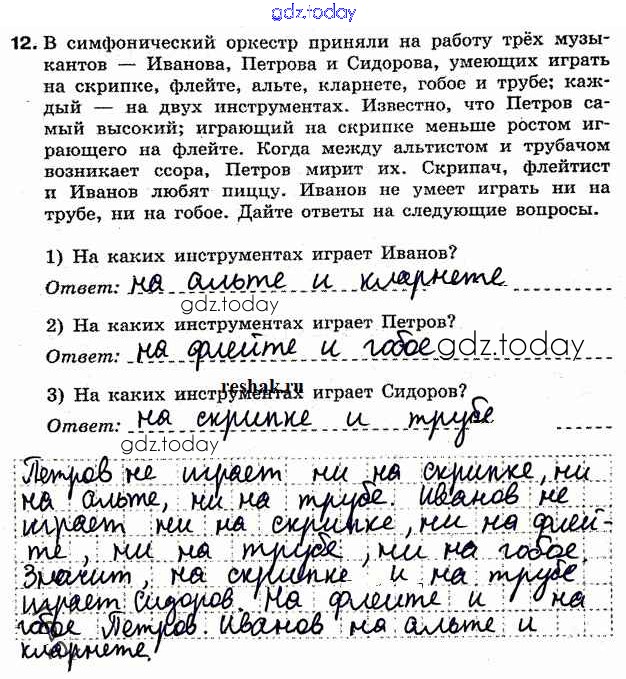 gdz.today
12. В симфонический оркестр приняли на работу трёх музы-
кантов — Иванова, Петрова и Сидорова, умеющих играть
на скрипке, флейте, альте, кларнете, гобое и трубе; каж-
дый — на двух инструментах. Известно, что Петров са-
мый высокий; играющий на скрипке меньше ростом иг-
рающего на флейте. Когда между альтистом и трубачом
возникает ссора, Петров мирит их. Скрипач, флейтист
и Иванов любят пиццу. Иванов не умеет играть ни на
трубе, ни на гобое. Дайте ответы на следующие вопросы.
1) На каких инструментах играет Иванов?
Ответ: на альте и кларнете
gdz.today
2) На каких инструментах играет Петров?
Ответ: на флейте и гобое gdz.today
3) На каких инструментах играет Сидоров?
reshak.ru
Ответ: на скрипке и трубе
gdz.today
Петров не играет ни на скрипке, ни
на альте, ни на трубе. Иванов не
играет ни на скрипке, ни на флей-
те, ни на трубе, ни на гобое.
Значит, на скрипке и на трубе
играет Сидоров. На флейте и на
гобое Петров. Иванов на альте и
кларнете.